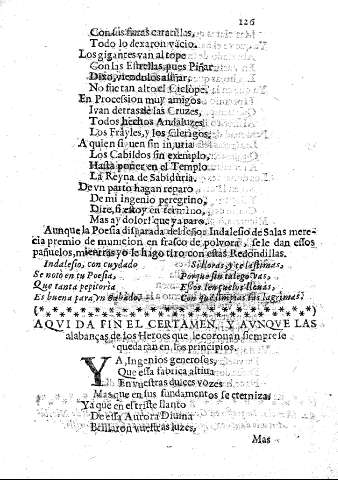 126
Con sus fieras caratulas,
Todo lo dexaron vacio.
Los gigantes van al tope
Con las Estrellas, pues Piñar
Dixo, viendolos assinar,
No fue tan alto el Ciclope.
En Procession muy amigos
Ivan detras de las Cruzes,
Todos hechos Andaluzes
Los Frayles, y los Clerigos.
A quien siguen sin injuria
Los Cabildos sin exemplo,
Hasta poner en el Templo
La Reyna de Sabiduria.
De vn parto hagan reparo
De mi ingenio peregrino,
Dire, si estoy en termino,
Mas ay dolor! que ya paro.
Aunque la Poesia disparada del señor Indalesio de Salas mere-
cia premio de municion en frasco de polvora, se le dan essos
pañuelos, mientras yo le hago tiro con estas Redondillas.
Indalesio, con cuydado
Se notò en tu Poesia,
Que tanta pepitoria
Es buena para vn Sabado?
Si lloras, y te lastimas,
Porque sin talego vas,
Essos lençuelos llevas,
Con que limpias tus lagrimas.
AQVI DA FIN EL CERTAMEN, Y AVNQVE LAS
alabanças de los Heroes que le coronan siempre se
quedaràn en los principios.
YA, Ingenios generosos,
Que essa fabrica altiva
En vuestras dulces vozes
Mas que en sus fundamentos se eterniza:
Ya que en este llanto
De essa Aurora Divina
Brillaron vuestras luzes,
Mas